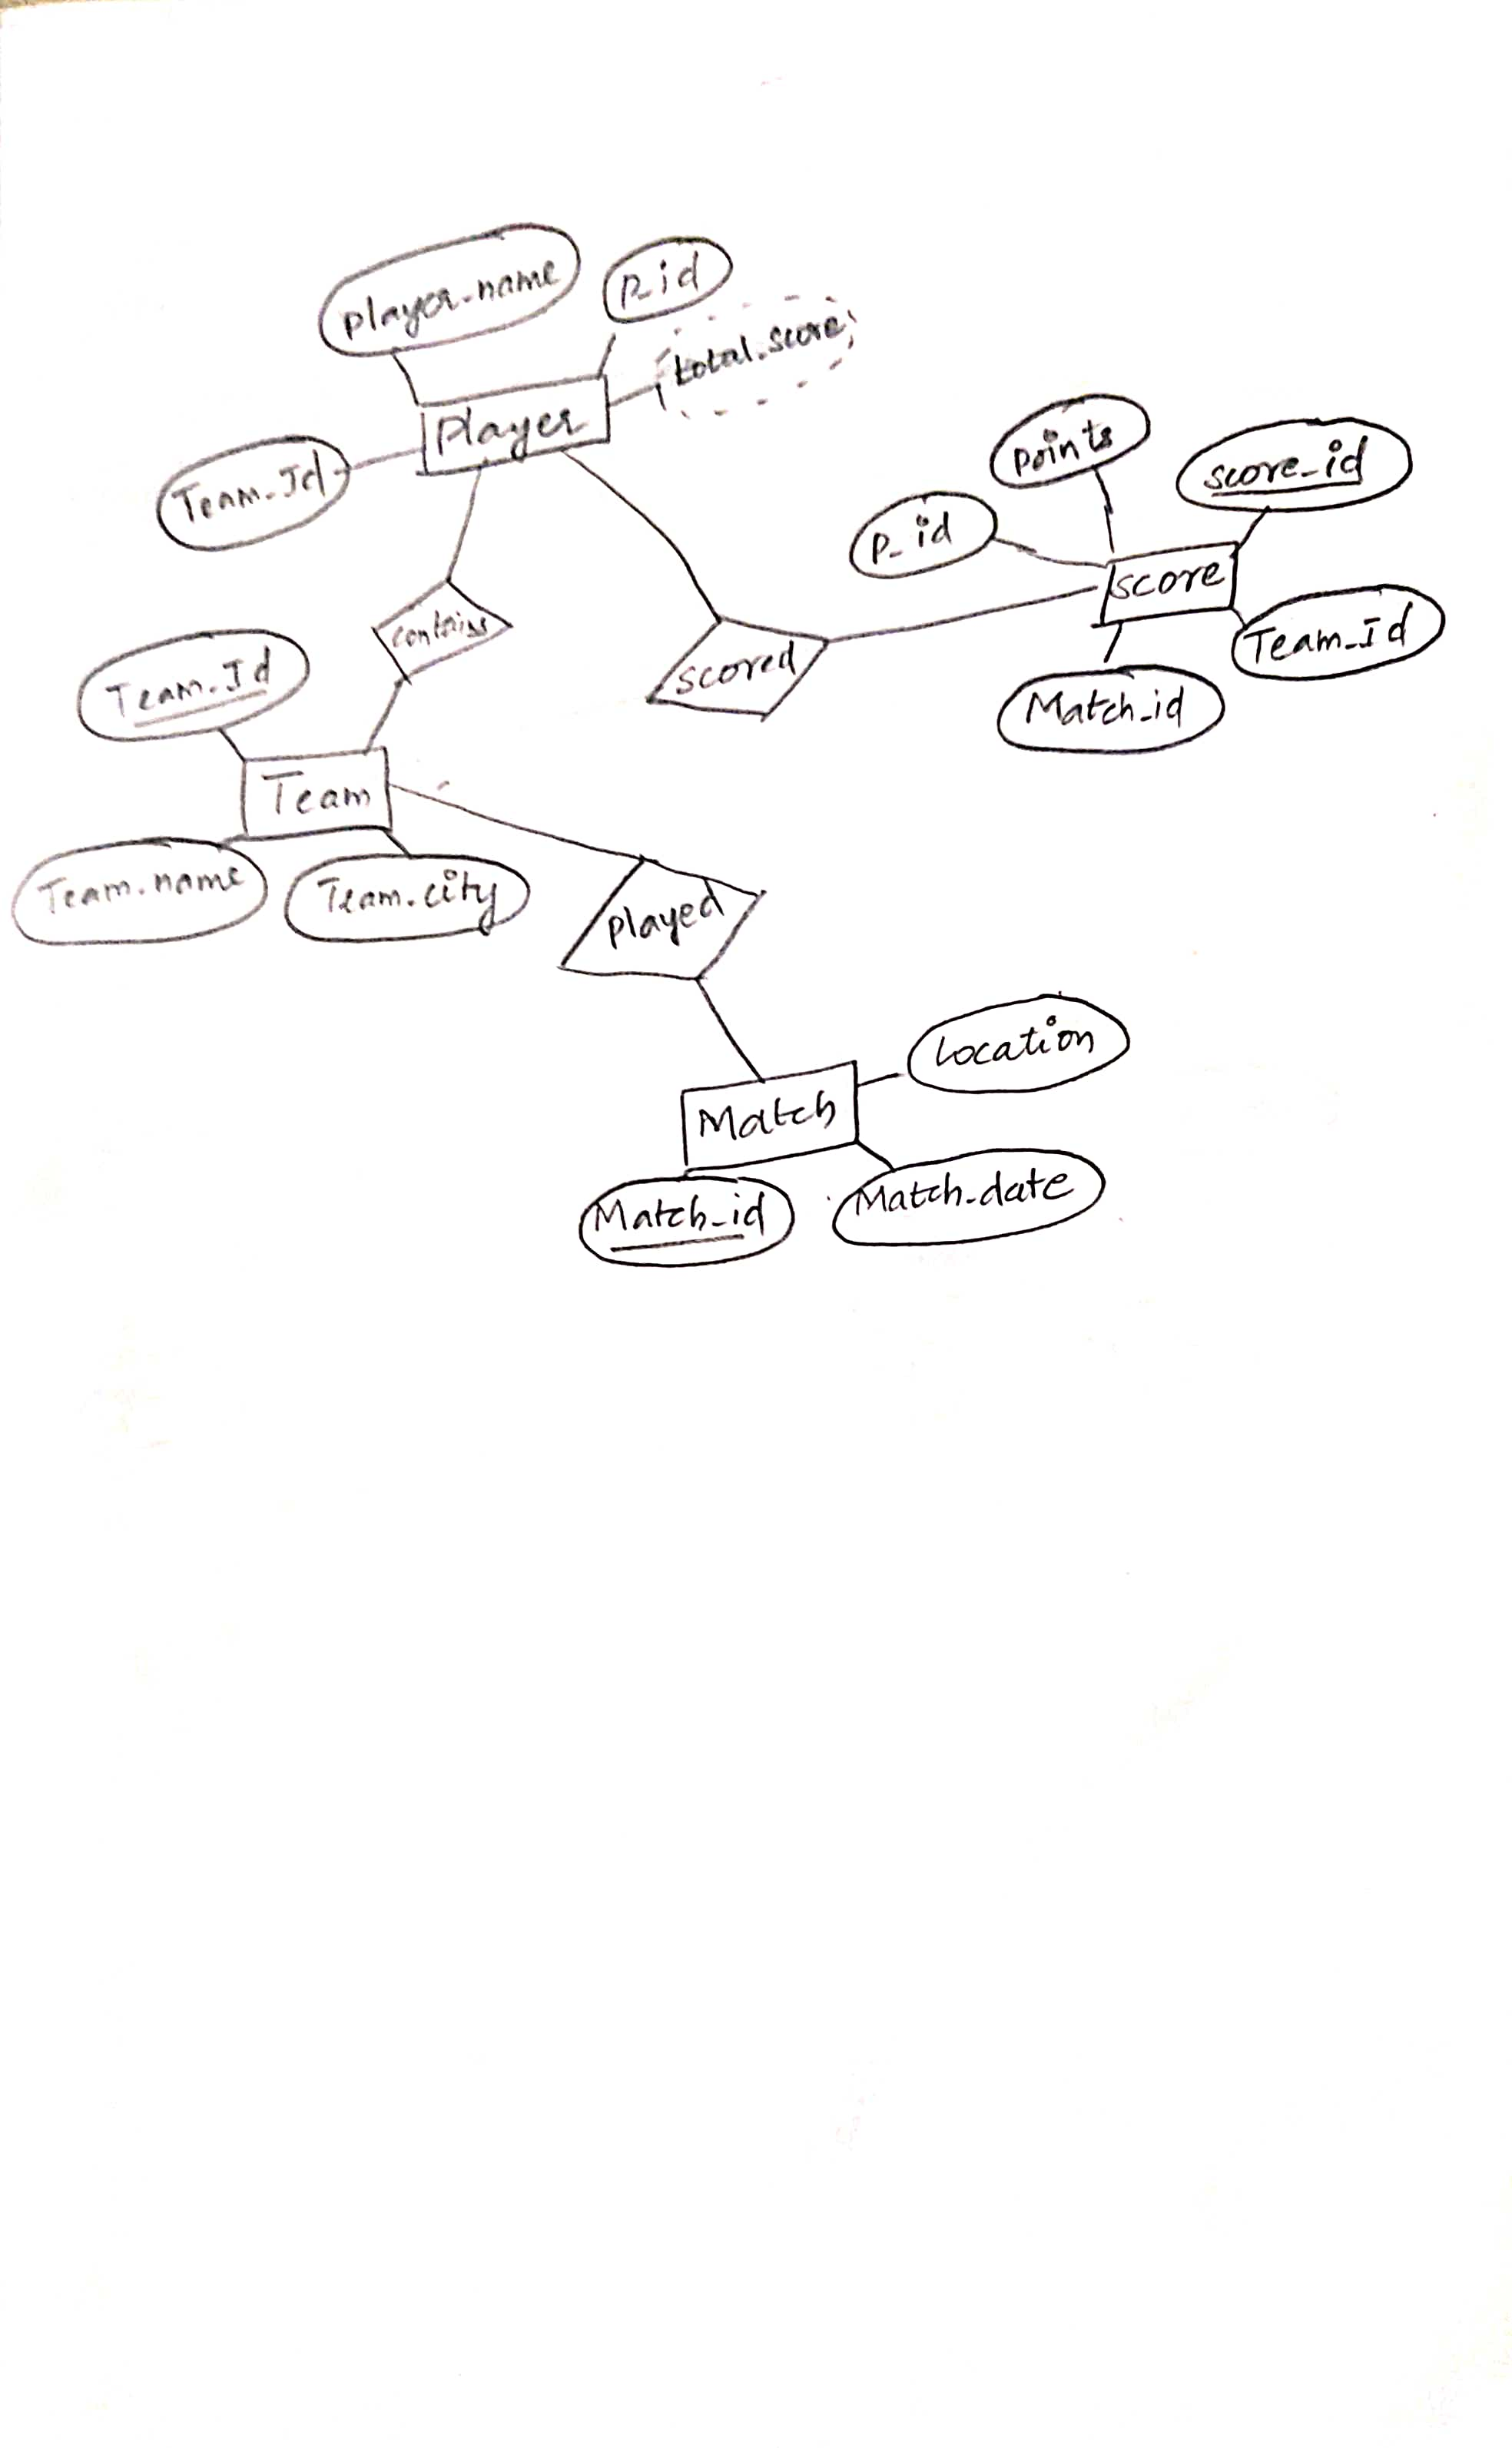 player_name
P_id
total_score
Player
Team_Id
points
score_id
P_id
score
Team_Id
Match_id
contains
scored
Team_Id
Team
Team_name
Team_city
played
Location
Match
Match_id
Match_date